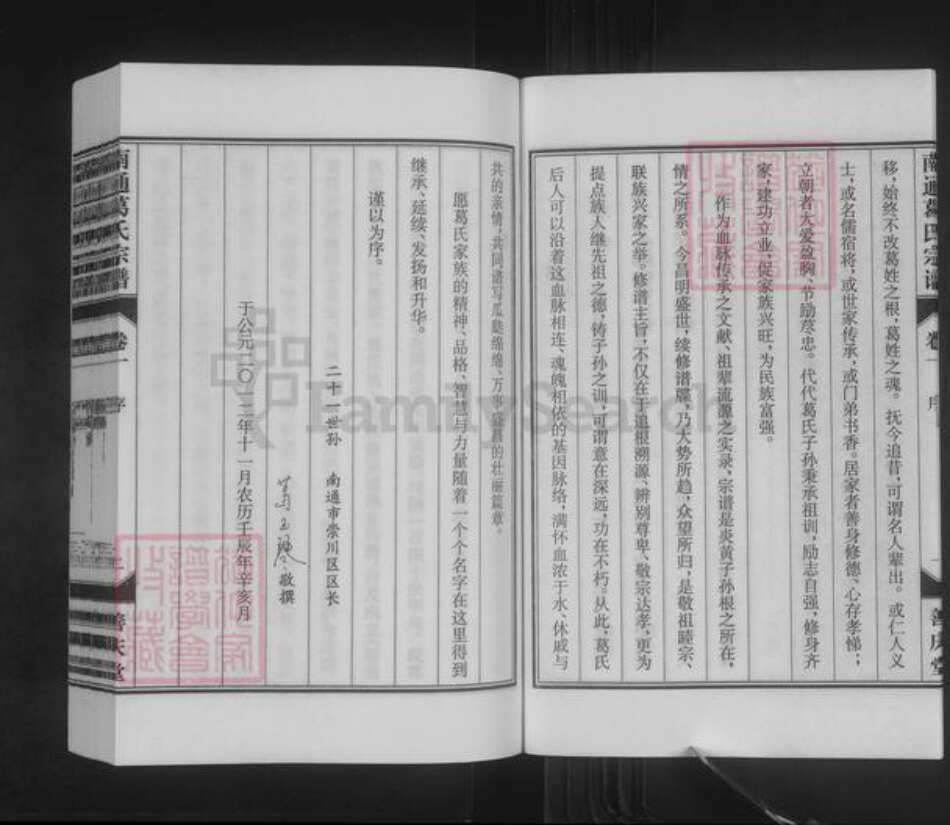 南通葛氏宗谱 卷一 序 善庆堂
移，始终不改葛姓之根，葛姓之魂。抚今追昔，可谓名人辈出。或仁人义
士，或名儒宿将，或世家传承，或门弟书香。居家者善身修德、心存孝悌；
立朝者大爱盈胸、节励尽忠。代代葛氏子孙秉承祖训，励志自强，修身齐
家，建功立业，促家族兴旺，为民族富强。
作为血脉传承之文献、祖辈流源之实录，宗谱是炎黄子孙根之所在，
情之所系。今昌明盛世，续修谱牒，乃大势所趋，众望所归，是敬祖睦宗、
联族兴家之举。修谱主旨，不仅在于追根溯源、辨别尊卑、敬宗达孝，更为
提点族人继先祖之德，铸子孙之训，可谓意在深远，功在不朽。从此，葛氏
后人可以沿着这血脉相连、魂魄相依的基因脉络，满怀血浓于水、休戚与
共的亲情，共同谱写瓜瓞绵绵、万事盛昌的壮丽篇章。
愿葛氏家族的精神、品格、智慧与力量随着一个个名字在这里得到
继承、延续、发扬和升华。
谨以为序。
二十一世孙 南通市崇川区区长
葛玉 敬撰
于公元二〇一二年十一月农历壬辰年辛亥月
南通葛氏宗谱 卷一 序 善庆堂
FamilySearch